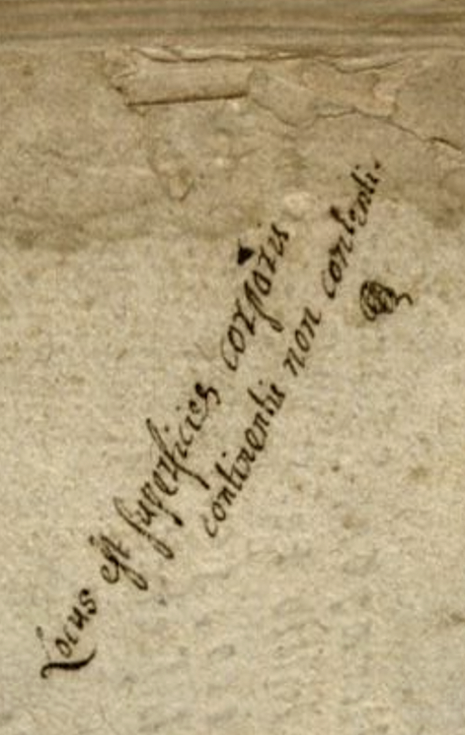 Locus est superficies corporis
continentis non contenti.